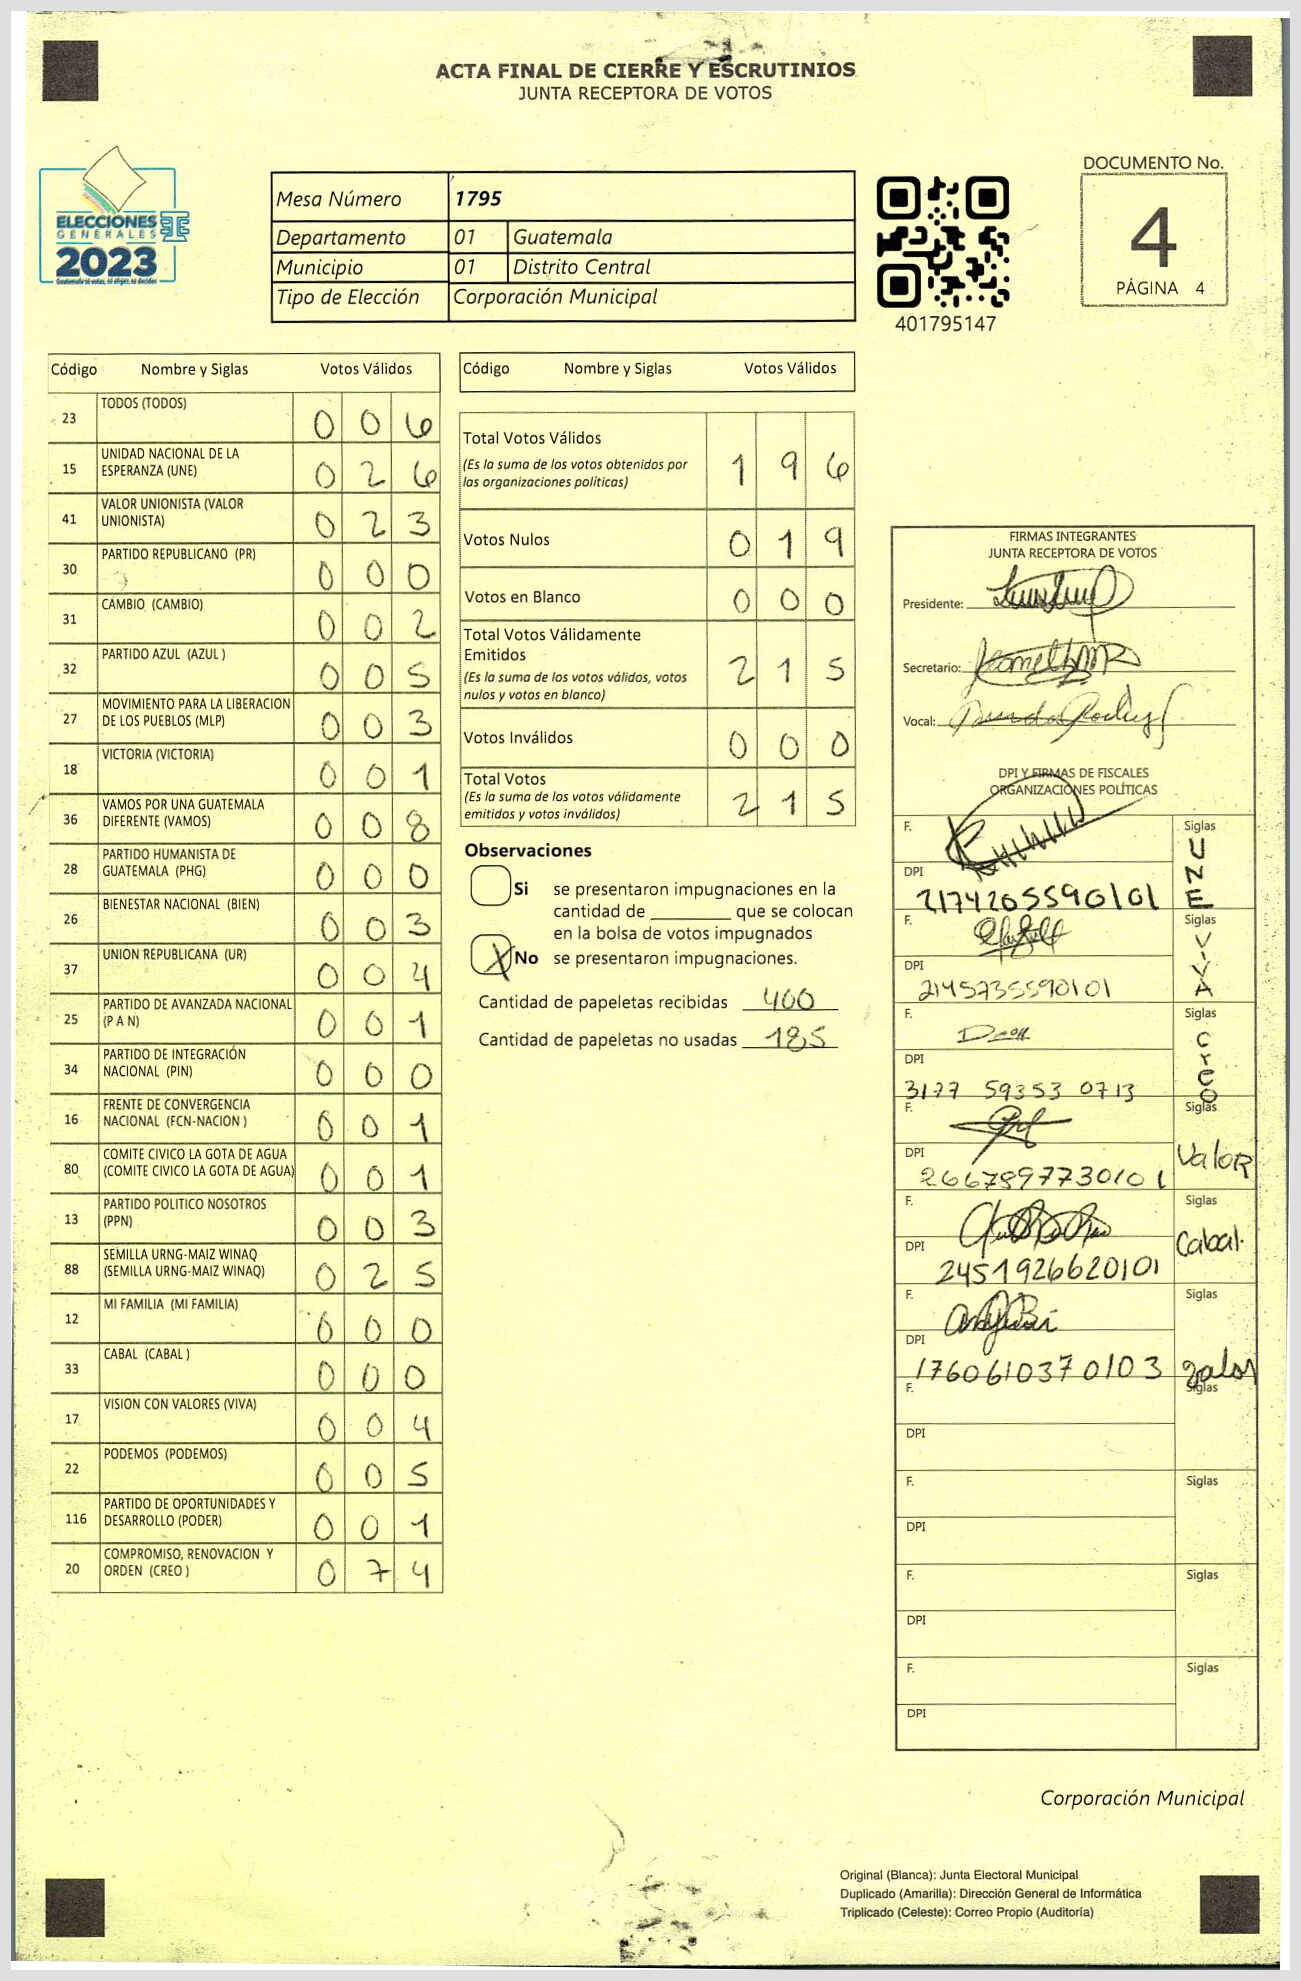 ACTA FINAL DE CIERRE Y ESCRUTINIOS
JUNTA RECEPTORA DE VOTOS
ELECCIONES
GENERALES
2023
Mesa Número 1795
Departamento 01 Guatemala
Municipio 01 Distrito Central
Tipo de Elección Corporación Municipal
401795147
DOCUMENTO No.
4
PÁGINA 4
Código Nombre y Siglas Votos Válidos
23 TODOS (TODOS) 0 0 6
15 UNIDAD NACIONAL DE LA
ESPERANZA (UNE) 0 2 6
41 VALOR UNIONISTA (VALOR
UNIONISTA) 0 2 3
30 PARTIDO REPUBLICANO (PR) 0 0 0
31 CAMBIO (CAMBIO) 0 0 2
32 PARTIDO AZUL (AZUL ) 0 0 5
27 MOVIMIENTO PARA LA LIBERACION
DE LOS PUEBLOS (MLP) 0 0 3
18 VICTORIA (VICTORIA) 0 0 1
36 VAMOS POR UNA GUATEMALA
DIFERENTE (VAMOS) 0 0 8
28 PARTIDO HUMANISTA DE
GUATEMALA (PHG) 0 0 0
26 BIENESTAR NACIONAL (BIEN) 0 0 3
37 UNION REPUBLICANA (UR) 0 0 4
25 PARTIDO DE AVANZADA NACIONAL
(P A N) 0 0 1
34 PARTIDO DE INTEGRACIÓN
NACIONAL (PIN) 0 0 0
16 FRENTE DE CONVERGENCIA
NACIONAL (FCN-NACION ) 0 0 1
80 COMITE CIVICO LA GOTA DE AGUA
(COMITE CIVICO LA GOTA DE AGUA) 0 0 1
13 PARTIDO POLITICO NOSOTROS
(PPN) 0 0 3
88 SEMILLA URNG-MAIZ WINAQ
(SEMILLA URNG-MAIZ WINAQ) 0 2 5
12 MI FAMILIA (MI FAMILIA) 0 0 0
33 CABAL (CABAL ) 0 0 0
17 VISION CON VALORES (VIVA) 0 0 4
22 PODEMOS (PODEMOS) 0 0 5
116 PARTIDO DE OPORTUNIDADES Y
DESARROLLO (PODER) 0 0 1
20 COMPROMISO, RENOVACION Y
ORDEN (CREO ) 0 7 4
Código Nombre y Siglas Votos Válidos
Total Votos Válidos 1 9 6
(Es la suma de los votos obtenidos por
las organizaciones políticas)
Votos Nulos 0 1 9
Votos en Blanco 0 0 0
Total Votos Válidamente
Emitidos 2 1 5
(Es la suma de los votos válidos, votos
nulos y votos en blanco)
Votos Inválidos 0 0 0
Total Votos 2 1 5
(Es la suma de los votos válidamente
emitidos y votos inválidos)
Observaciones
Si se presentaron impugnaciones en la
cantidad de ________ que se colocan
en la bolsa de votos impugnados
X No se presentaron impugnaciones.
Cantidad de papeletas recibidas 400
Cantidad de papeletas no usadas 185
FIRMAS INTEGRANTES
JUNTA RECEPTORA DE VOTOS
Presidente:
Secretario:
Vocal:
DPI Y FIRMAS DE FISCALES
ORGANIZACIONES POLÍTICAS
F. Siglas UNE
DPI 2174205590101
F. Siglas VIVA
DPI 2145735590101
F. Siglas Creo
DPI 3177 59353 0713
F. Siglas Valor
DPI 2667897730101
F. Siglas Cabal.
DPI 2451926620101
F. Siglas
DPI 1760610370103
F. Siglas
DPI
F. Siglas
DPI
F. Siglas
DPI
F. Siglas
DPI
Corporación Municipal
Original (Blanca): Junta Electoral Municipal
Duplicado (Amarilla): Dirección General de Informática
Triplicado (Celeste): Correo Propio (Auditoría)